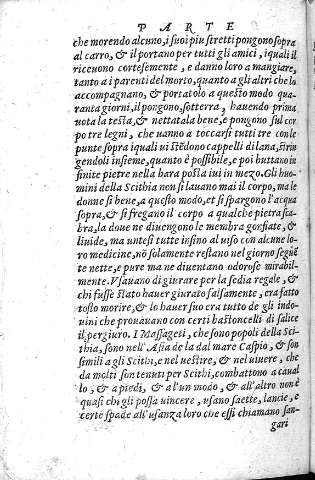 PARTE
che morendo alcuno, i suoi piu stretti pongono sopra
al carro, & il portano per tutti gli amici, iquali il
riceuono cortesemente, e danno loro a mangiare,
tanto a i parenti del morto, quanto a gli altri che lo
accompagnano, & portatolo a questo modo qua-
ranta giorni, il pongono sotterra, hauendo prima
uota la testa, & nettatala bene, e pongono sul cor
po tre legni, che uanno a toccarsi tutti tre con le
punte sopra i quali ui stēdono cappelli di lana, strin
gendoli insieme, quanto è possibile, e poi buttano in
finite pietre nella bara posta iui in mezo. Gli huo
mini della Scithia non si lauano mai il corpo, ma le
donne si bene, a questo modo, et si spargono l'acqua
sopra, & si fregano il corpo a qualche pietra sca-
bra, la doue ne diuengono le membra gonfiate, &
liuide, ma untesi tutte insino al uiso con alcune lo-
ro medicine, nō solamente restano nel giorno seguē
te nette, e pure ma ne diuentano odorose mirabil-
mente. Vsauano di giurare per la sedia regale, &
chi fusse stato hauer giurato falsamente, era fatto
tosto morire, & lo hauer suo era tutto de gli indo-
uini che prouauano con certi bastoncelli di salice
il pergiuro. I Massageti, che sono popoli della Sci-
thia, sono nell'Asia de la dal mare Caspio, & son
simili a gli Scithi, e nel uestire, & nel uiuere, che
da molti son tenuti per Scithi, combattono a caual
lo, & a piedi, & a l'un modo, & all'altro non è
quasi chi gli possa uincere, usano saette, lancie, e
certe spade all'usanza loro che essi chiamano san-
gari